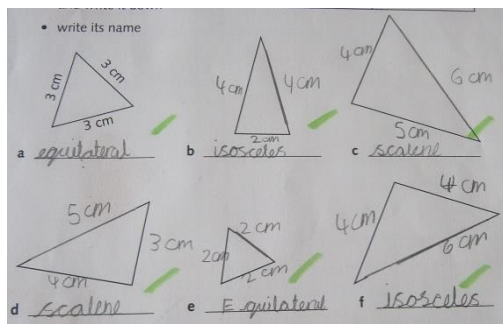 • write its name
3 cm
3 cm
3 cm
a equilateral
4 cm
4 cm
2 cm
b isosceles
4 cm
6 cm
5 cm
c scalene
5 cm
3 cm
4 cm
d scalene
2 cm
2 cm
2 cm
e Equilateral
4 cm
4 cm
6 cm
f isosceles